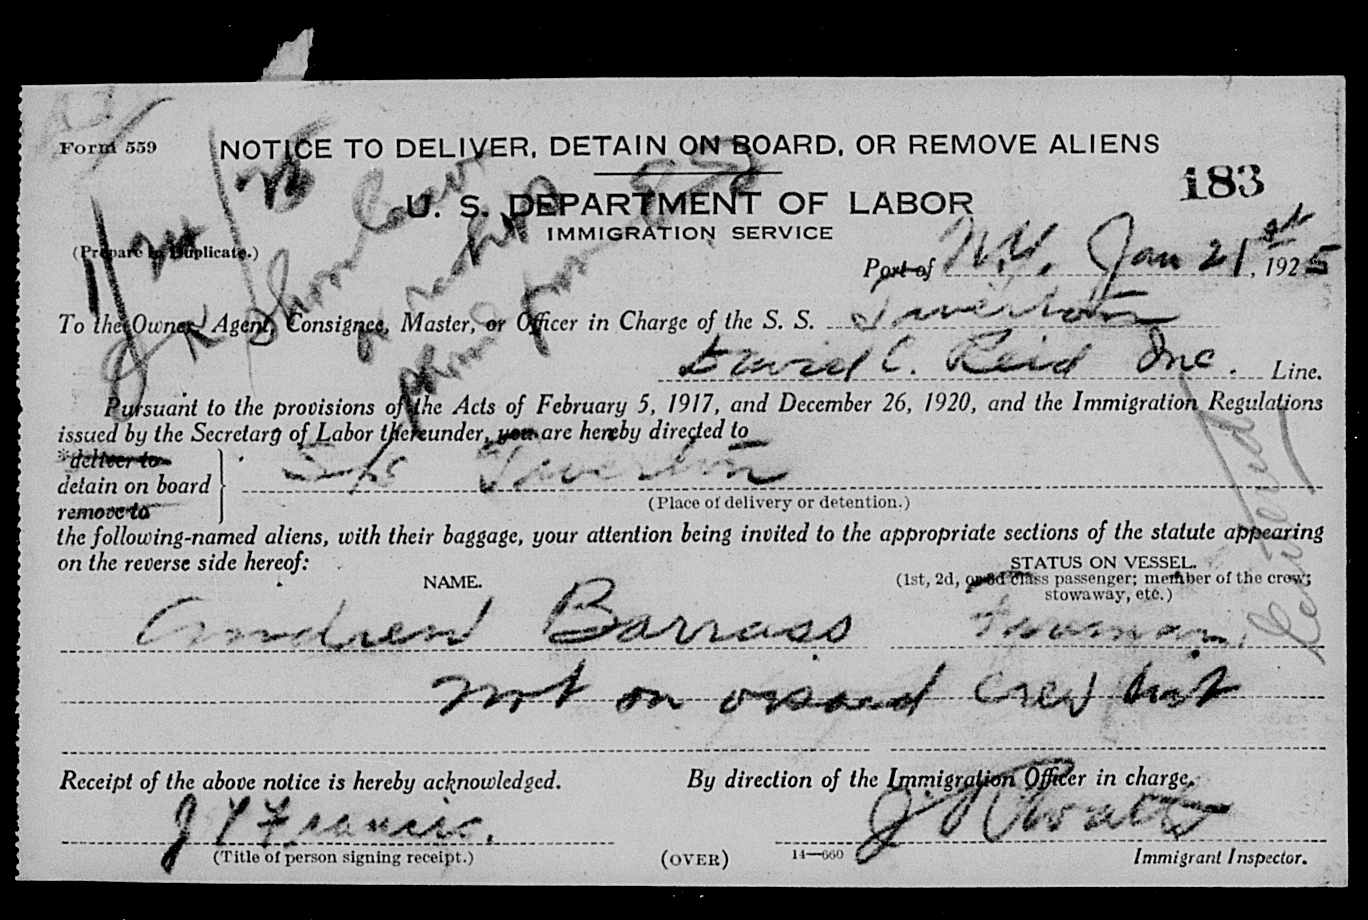 Form 559
NOTICE TO DELIVER, DETAIN ON BOARD, OR REMOVE ALIENS
183
U. S. DEPARTMENT OF LABOR
IMMIGRATION SERVICE
(Prepare in Duplicate.)
Port of N.Y. Jan 21st, 1925
To the Owner, Agent, Consignee, Master, or Officer in Charge of the S. S. Tiverton
David C. Reid Inc. Line.
Pursuant to the provisions of the Acts of February 5, 1917, and December 26, 1920, and the Immigration Regulations
issued by the Secretary of Labor thereunder, you are hereby directed to
*deliver to
detain on board
remove to
S/S Tiverton
(Place of delivery or detention.)
the following-named aliens, with their baggage, your attention being invited to the appropriate sections of the statute appearing
on the reverse side hereof:
NAME.
STATUS ON VESSEL.
(1st, 2d, or 3d class passenger; member of the crew;
stowaway, etc.)
Andrew Barrass Fireman
not on visaed crew list
Receipt of the above notice is hereby acknowledged.
By direction of the Immigration Officer in charge,
J Francis.
(Title of person signing receipt.)
(OVER)
14—660
Immigrant Inspector.